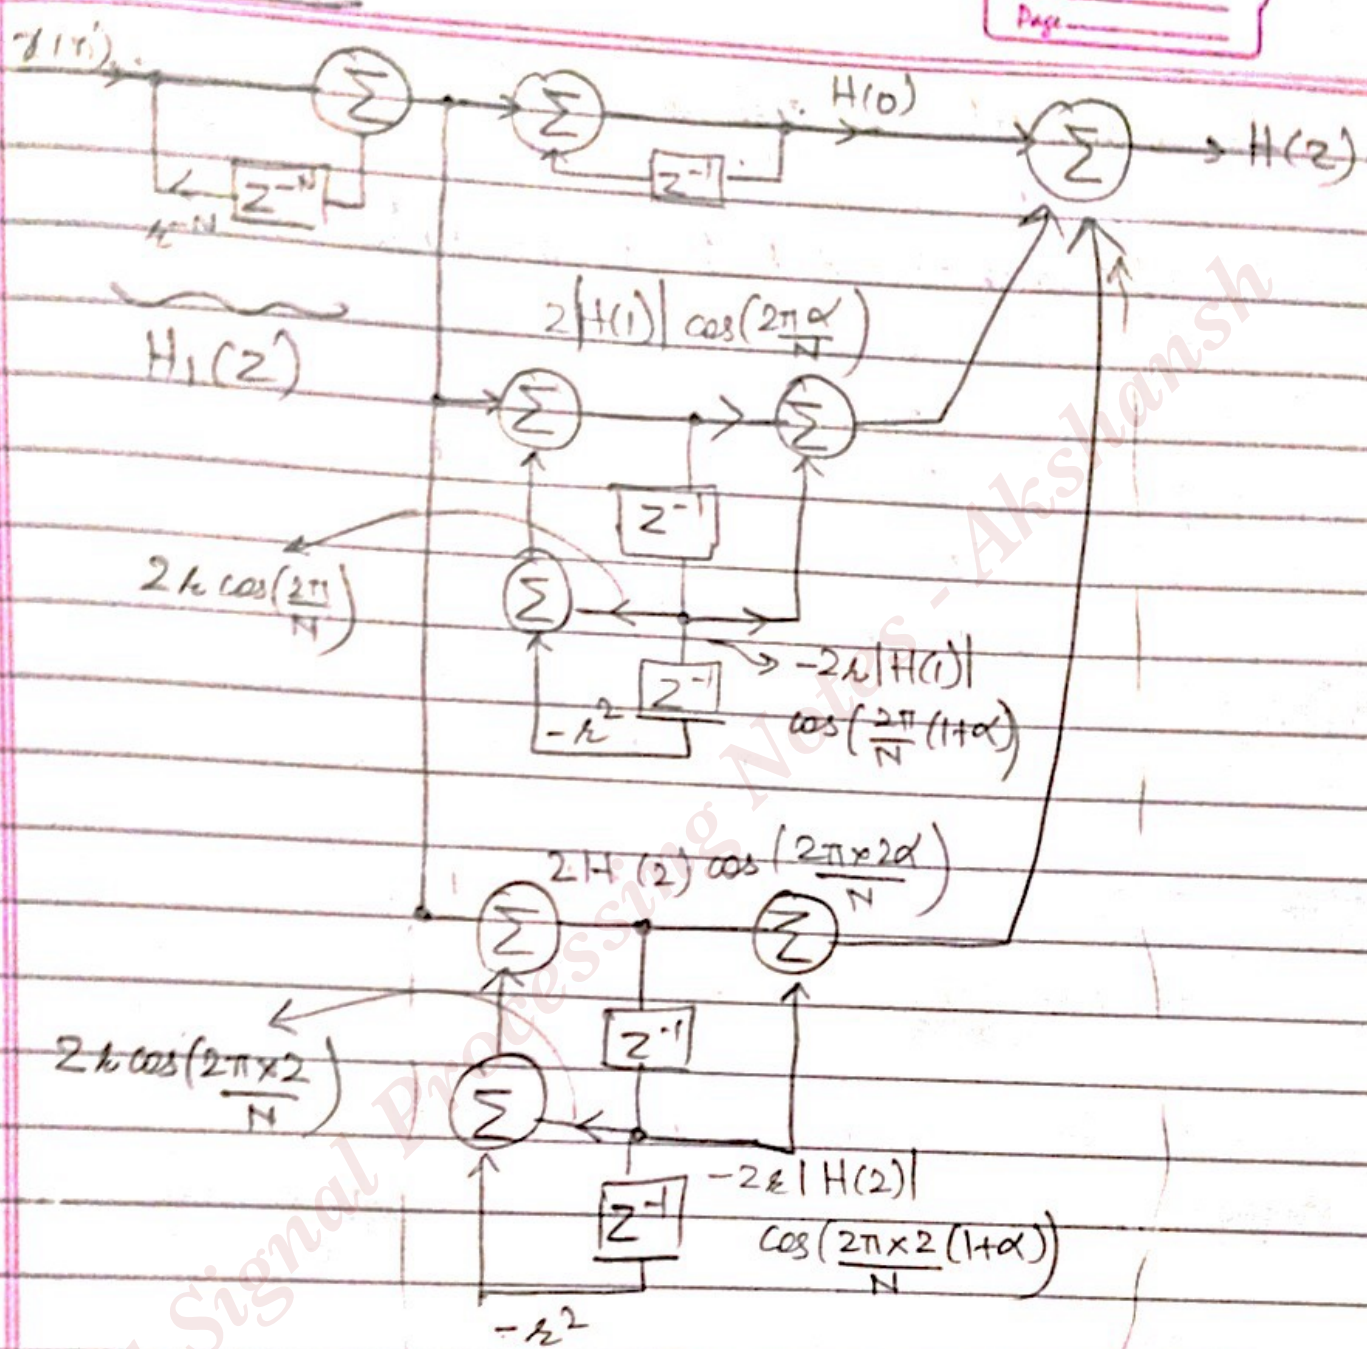 Page
Σ
Σ
H(0)
Σ
H(z)
z⁻ᴺ
z⁻¹
H₁(z)
2|H(1)| cos(2πα/N)
Σ
Σ
z⁻¹
2r cos(2π/N)
Σ
-2r|H(1)|
z⁻¹
-r²
cos(2π/N (1+α))
2H(2) cos(2π×2α/N)
Σ
Σ
z⁻¹
2r cos(2π×2/N)
Σ
-2r|H(2)|
z⁻¹
cos(2π×2/N (1+α))
-r²
Signal Processing Notes - Akshansh